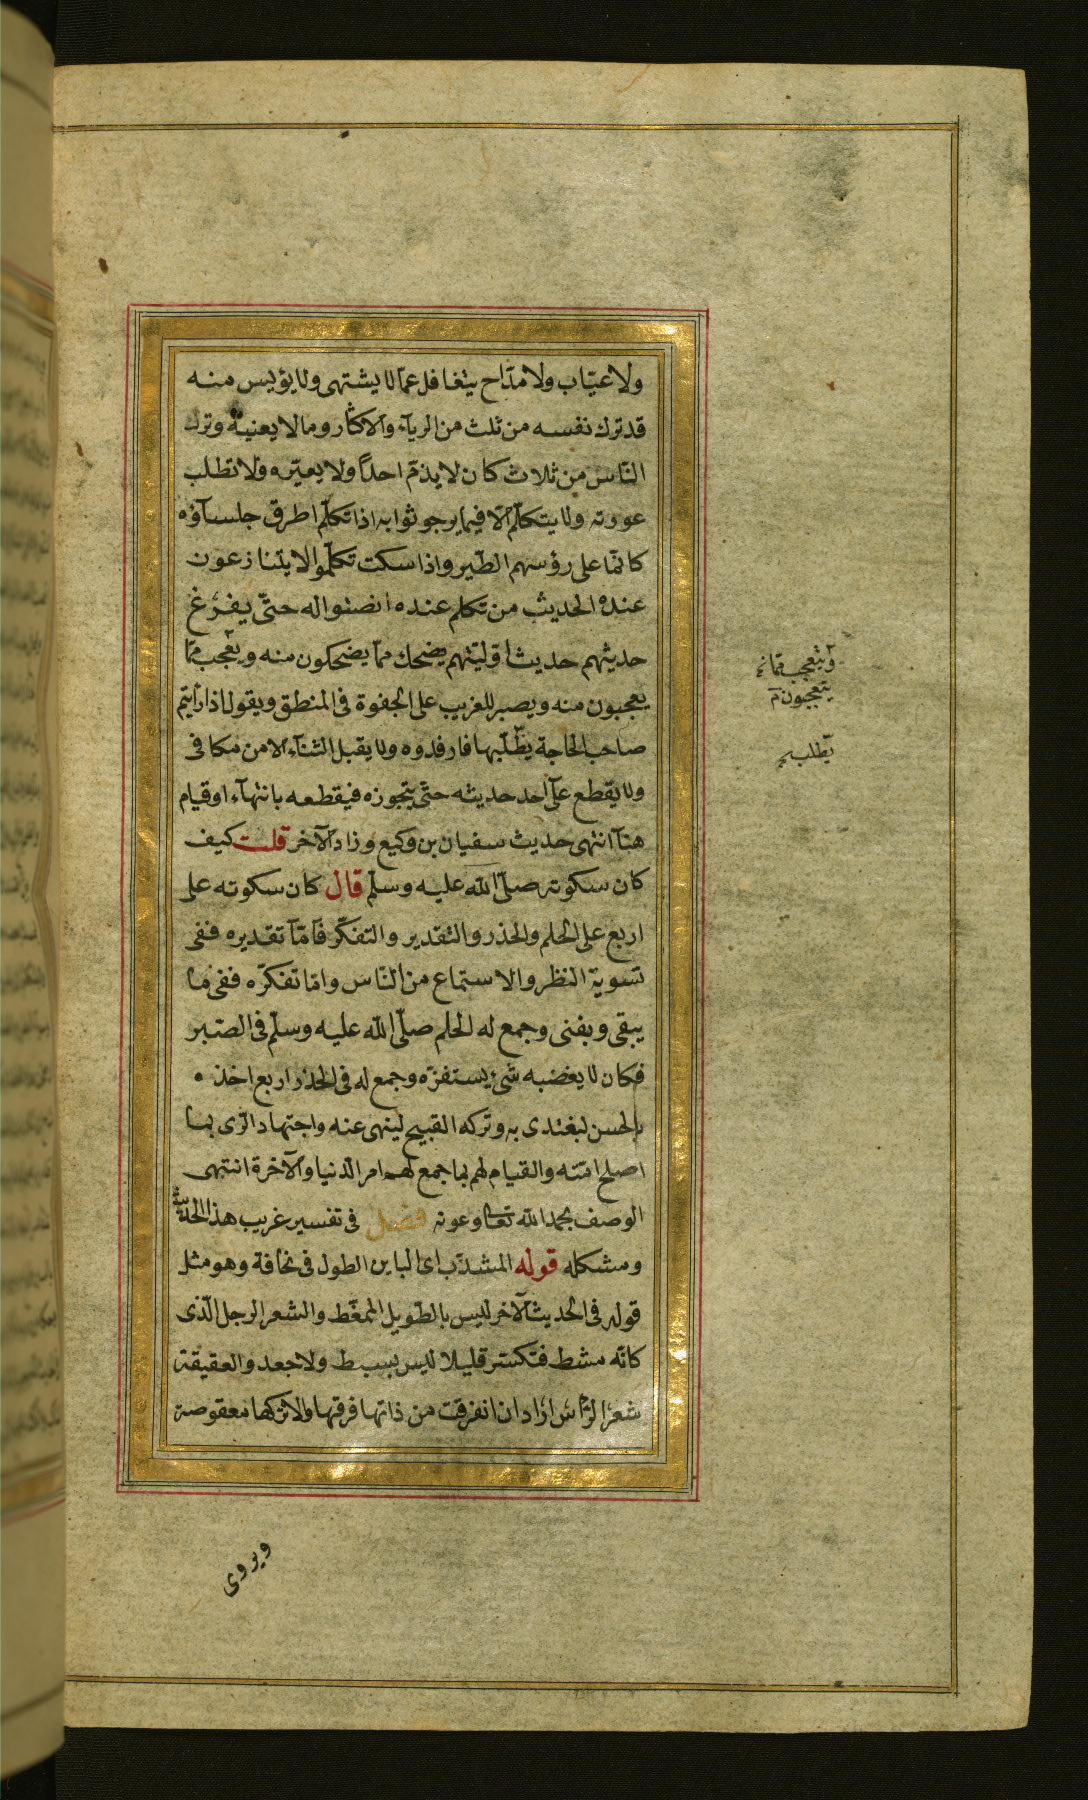 ولا عيّاب ولا مدّاح يتغافل عمّا لا يشتهى ولا يؤيس منه
قد ترك نفسه من ثلث من الريآء والاكثار وما لا يعنيه وترك
النّاس من ثلاث كان لا يذمّ احدًا ولا يعيّره ولا تطلب
عورته ولا يتكلّم الّا فيما يرجو ثوابه اذا تكلّم اطرق جلسآؤه
كانّما على رؤسهم الطّير واذا سكت تكلّموا لا يتنازعون
عنده الحديث من تكلم عنده انصتوا له حتّى يفرغ
حديثهم حديث اوّليّتهم يضحك ممّا يضحكون منه ويعجب ممّا
يعجبون منه ويصبر للغريب على الجفوة فى المنطق ويقول اذا رأيتم
صاحب الحاجة يطّلبها فارفدوه ولا يقبل الثنآء الا من مكافى
ولا يقطع على احد حديثه حتّى يتجوزه فيقطعه بانتهآء او قيام
هنا انتهى حديث سفيان بن وكيع وزاد الآخر قلت كيف
كان سكوته صلّى الله عليه وسلّم قال كان سكوته على
اربع على الحلم والحذر والتقدير والتفكّر فامّا تقديره ففى
تسوية النظر والاستماع من النّاس وامّا تفكّره ففى ما
يبقى ويفنى وجمع له الحلم صلّى الله عليه وسلّم فى الصّبر
فكان لا يغضبه شئ يستفزّه وجمع له فى الحذر اربع اخذه
بالحسن ليقتدى به وتركه القبيح لينهى عنه واجتهاد الرّى بما
اصلح امّته والقيام لهم بما جمع لهم امر الدّنيا والآخرة انتهى
الوصف بحمد الله تعالى وعونه فصل فى تفسير غريب هذا الحديث
ومشكله قوله المشذّب اى الباين الطول فى نحافة وهو مثل
قوله فى الحديث الآخر ليس بالطّويل الممغّط والشعر الرجل الّذى
كانّه مشط فتكسّر قليلا ليس بسبط ولا جعد والعقيقة
شعر الرّاس اراد ان انفرقت من ذاتها فرقها والا تركها معقوصة
ويتعجب ممّا
يتعجبون
يطلب
ويروى